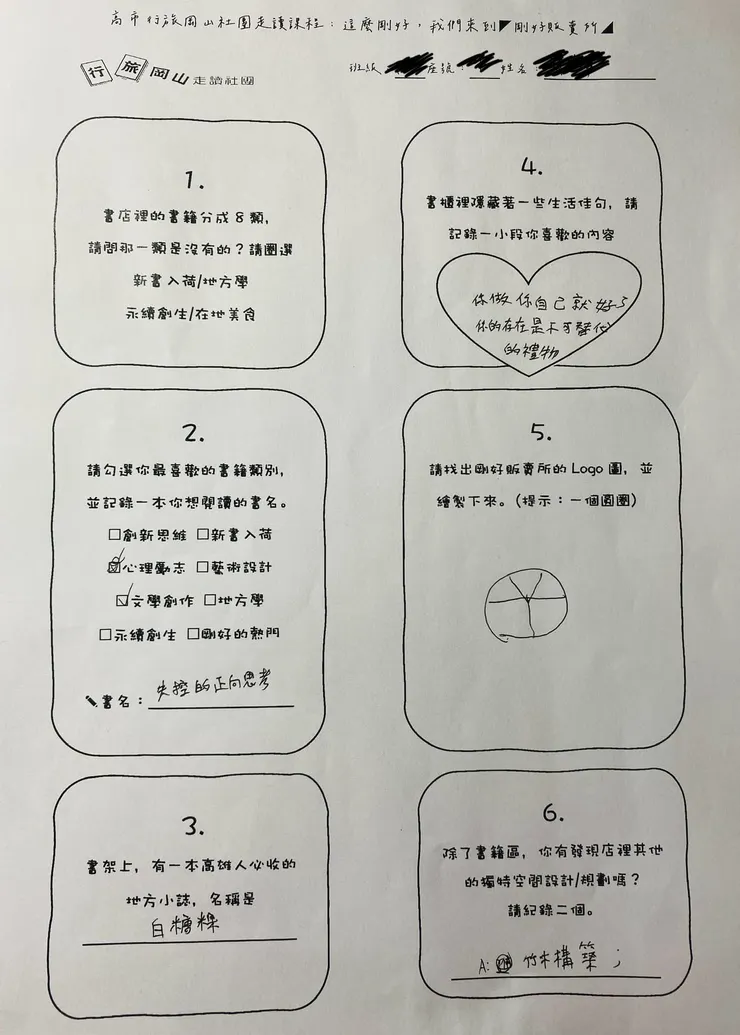 高市行旅岡山社團走讀課程：這麼剛好，我們來到◤剛好販賣所◢
行旅岡山走讀社團
班級 座號 姓名
1.
書店裡的書籍分成8類，
請問那一類是沒有的？請圈選
新書入荷/地方學
永續創生/在地美食
2.
請勾選你最喜歡的書籍類別，
並記錄一本你想閱讀的書名。
☐創新思維 ☐新書入荷
☑心理勵志 ☐藝術設計
☑文學創作 ☐地方學
☐永續創生 ☐剛好的熱門
書名：失控的正向思考
3.
書架上，有一本高雄人必收的
地方小誌，名稱是
白糖粿
4.
書櫃裡隱藏著一些生活佳句，請
記錄一小段你喜歡的內容
你做你自己就好了
你的存在是不可替代
的禮物
5.
請找出剛好販賣所的 Logo 圖，並
繪製下來。(提示：一個圓圈)
6.
除了書籍區，你有發現店裡其他
的獨特空間設計/規劃嗎？
請紀錄二個。
A: 竹木構築；